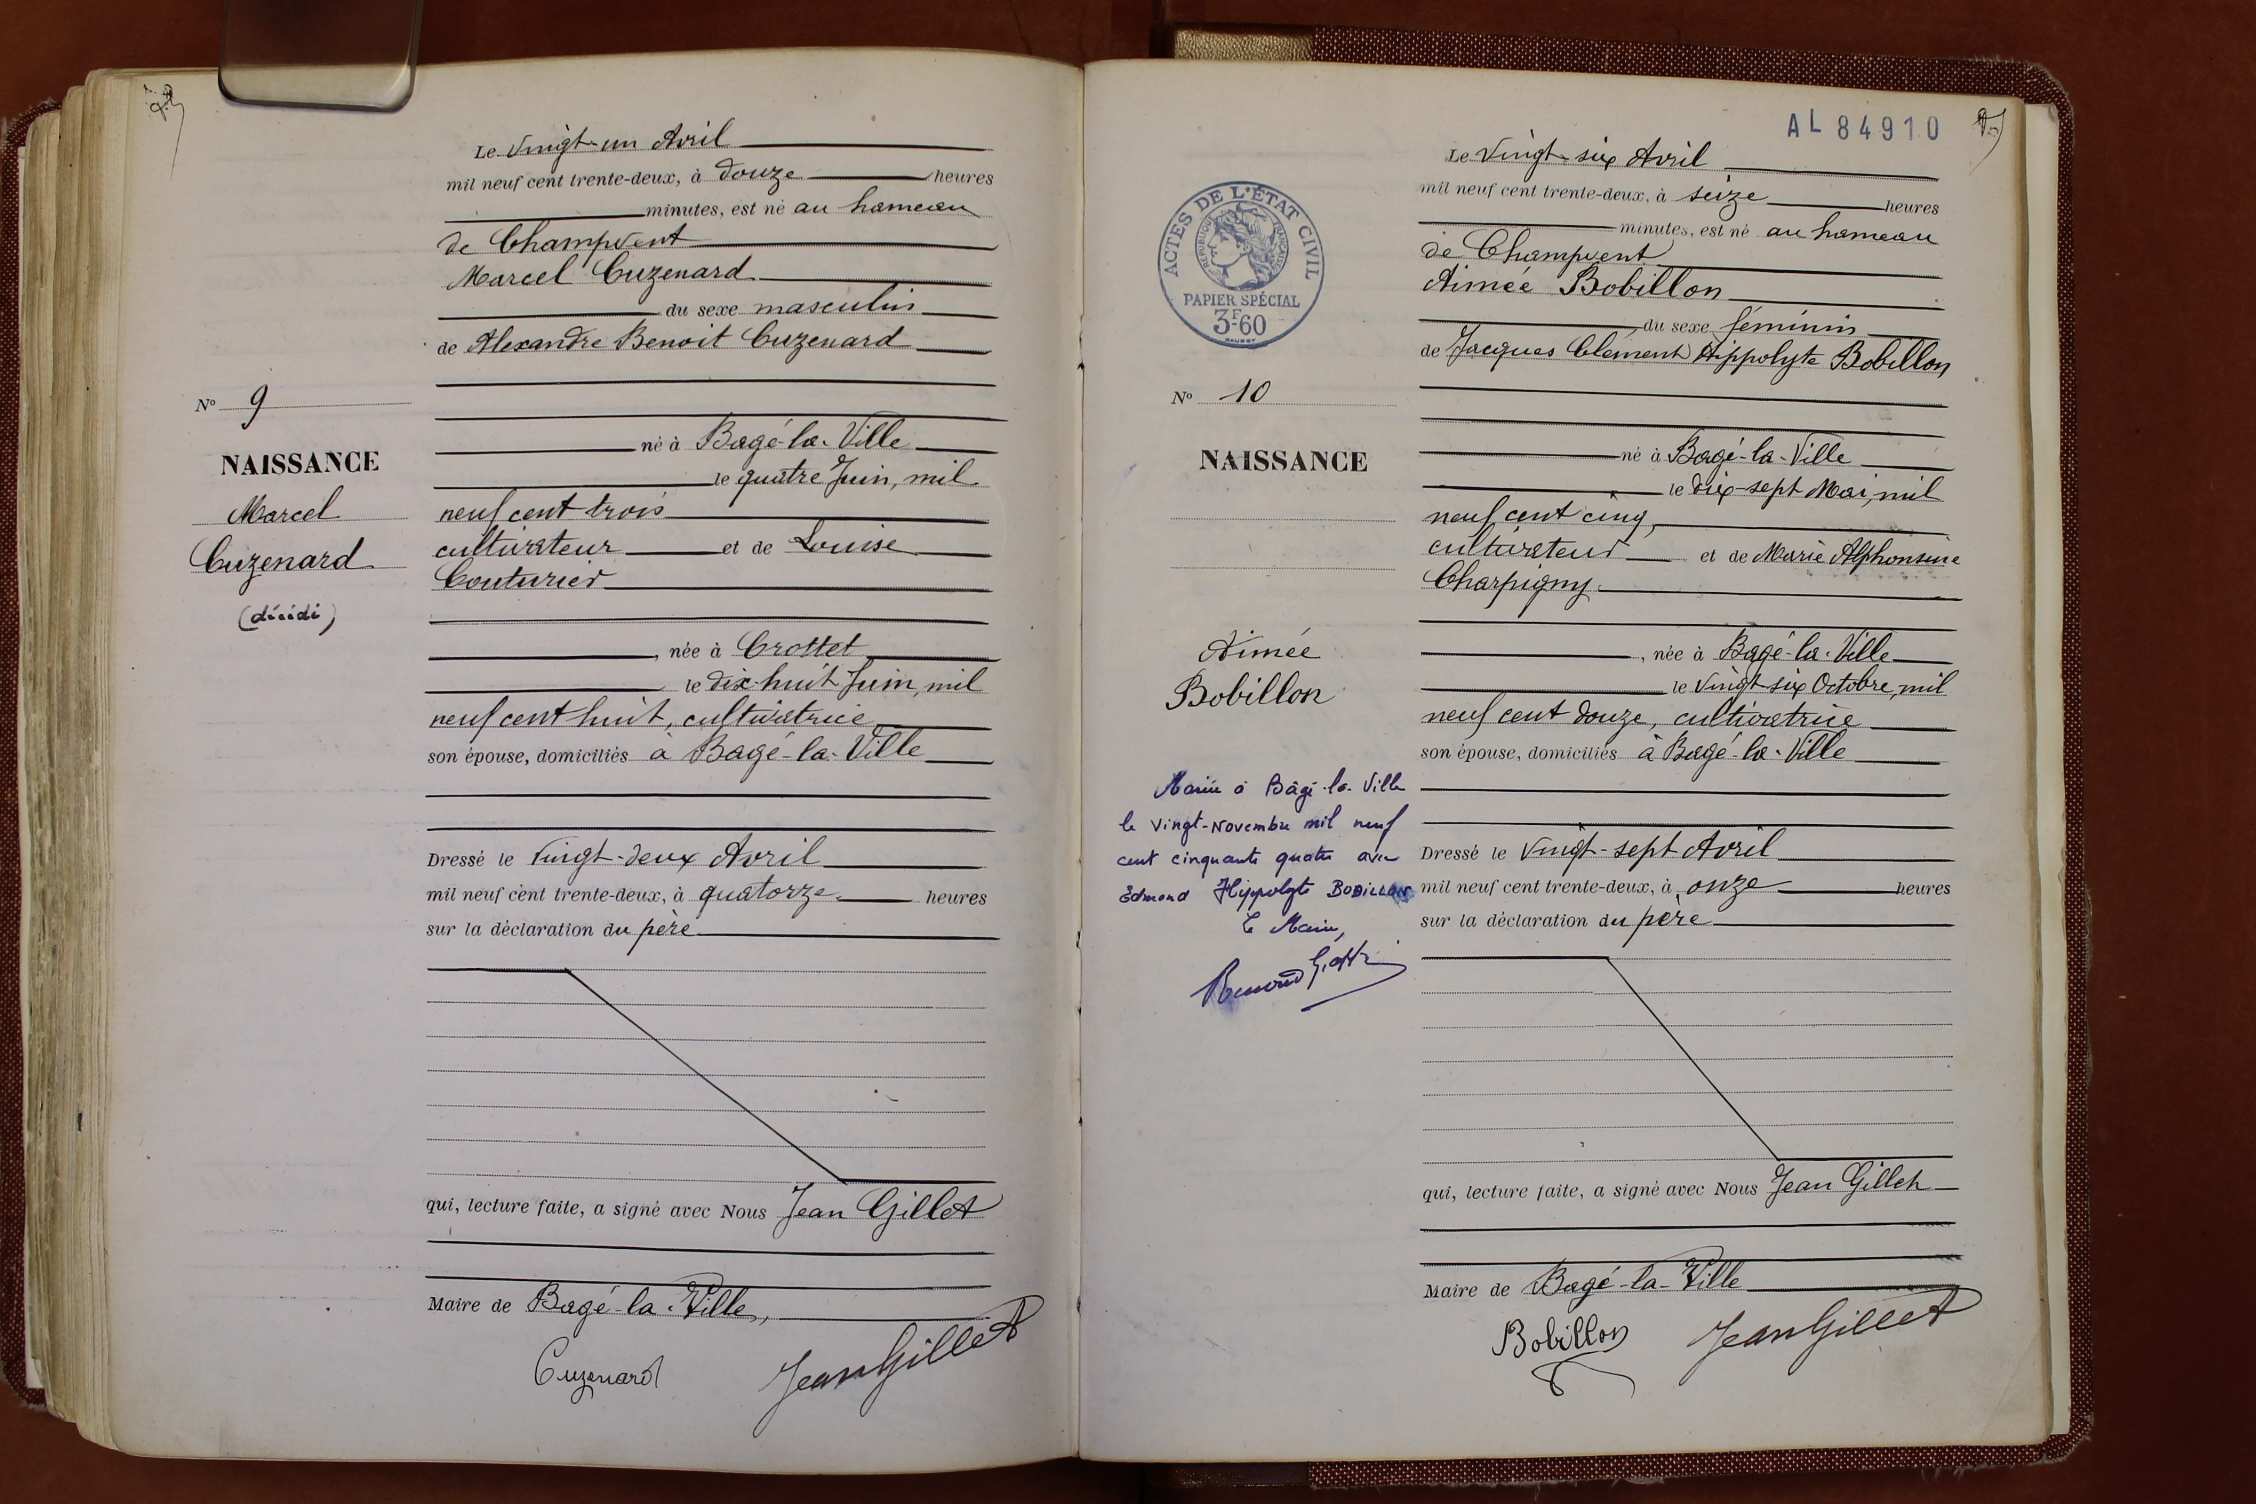 Le Vingt-un Avril
mil neuf cent trente-deux, à douze heures
minutes, est né au hameau
de Champvent
Marcel Cuzenard
du sexe masculin
de Alexandre Benoit Cuzenard
né à Bagé-la-Ville
le quatre Juin, mil
neuf cent trois
cultivateur et de Louise
Couturier
, née à Crottet
le dix-huit Juin, mil
neuf cent huit, cultivatrice
son épouse, domiciliés à Bagé-la-Ville
Dressé le Vingt-deux Avril
mil neuf cent trente-deux, à quatorze heures
sur la déclaration du père
qui, lecture faite, a signé avec Nous Jean Gillet
Maire de Bagé-la-Ville,
Cuzenard Jean Gillet
N° 9
NAISSANCE
Marcel
Cuzenard
(décédé)
AL 84910
Le Vingt-six Avril
mil neuf cent trente-deux, à seize heures
minutes, est né au hameau
de Champvent
Aimée Bobillon
du sexe féminin
de Jacques Clément Hippolyte Bobillon
né à Bagé-la-Ville
le dix-sept Mai, mil
neuf cent cinq,
cultivateur et de Marie Alphonsine
Charpigny
, née à Bagé-la-Ville
le Vingt six Octobre, mil
neuf cent douze, cultivatrice
son épouse, domiciliés à Bagé-la-Ville
Dressé le Vingt-sept Avril
mil neuf cent trente-deux, à onze heures
sur la déclaration du père
qui, lecture faite, a signé avec Nous Jean Gillet
Maire de Bagé-la-Ville
Bobillon Jean Gillet
ACTES DE L'ÉTAT CIVIL
RÉPUBLIQUE FRANÇAISE
PAPIER SPÉCIAL
3F60
N° 10
NAISSANCE
Aimée
Bobillon
Mariée à Bâgé-la-Ville
le vingt-Novembre mil neuf
cent cinquante quatre avec
Edmond Hippolyte BOBILLON
Le Maire,